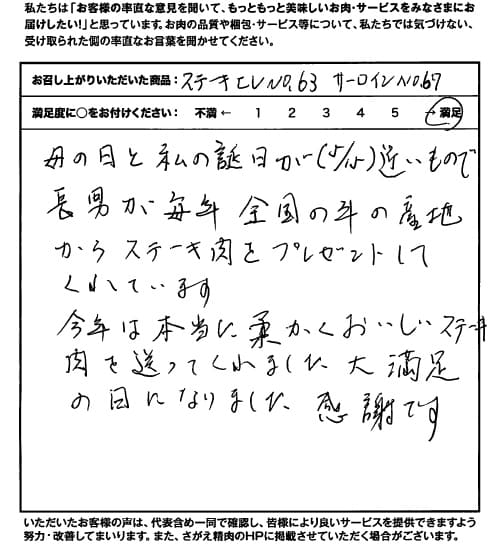 私たちは「お客様の率直な意見を聞いて、もっともっと美味しいお肉・サービスをみなさまにお
届けしたい!」と思っています。お肉の品質や梱包・サービス等について、私たちでは気づけない、
受け取られた側の率直なお言葉を聞かせてください。
お召し上がりいただいた商品：ステーキヒレNo.63 サーロインNo.67
満足度に○をお付けください： 不満 ← 1 2 3 4 5 → 満足
母の日と私の誕日が(5/15)近いもので
長男が毎年 全国の牛の産地
からステーキ肉をプレゼントして
くれています
今年は本当に柔かくおいしいステーキ
肉を送ってくれました 大満足
の日になりました 感謝です
いただいたお客様の声は、代表含め一同で確認し、皆様により良いサービスを提供できますよう
努力・改善してまいります。また、さがえ精肉のHPに掲載させていただく場合がございます。